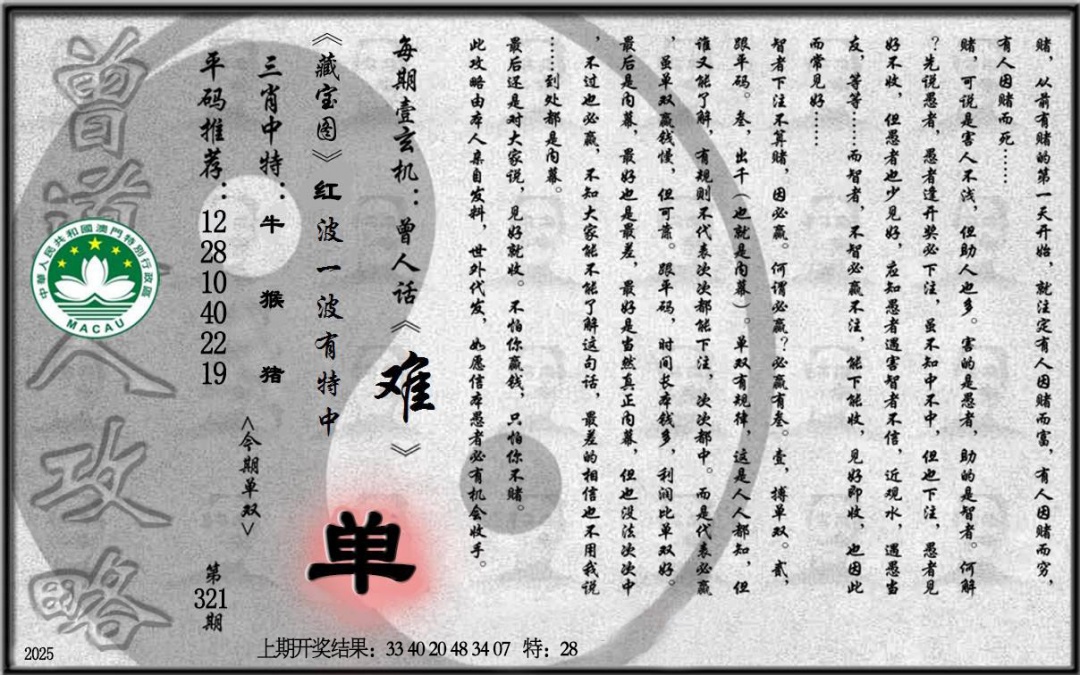 赌，从前有赌的第一天开始，就注定有人因赌而富，有人因赌而穷，
有人因赌而死……
赌，可说是害人不浅，但助人也多。害的是愚者，助的是智者。何解
？先说愚者，愚者逢开奖必下注，虽不知中不中，但也下注，愚者见
好不收，但愚者也少见好，应知愚者遇害智者不信，近观水，遇愚当
友，等等……而智者，不智必赢不注，能下能收，见好即收，也因此
而常见好……
智者下注不算赌，因必赢。何谓必赢？必赢有叁。壹，搏单双。贰，
跟单码。叁，出千（也就是内幕）。单双有规律，这是人人都知，但
谁又能了解，有规则不代表次次都能下注，次次都中。而是代表必赢
，虽单双赢钱慢，但可靠。跟单码，时间长本钱多，利润比单双好。
最后是内幕，最好也是最差，最好是当然真正内幕，但也没法次次中
，不过也必赢，不知大家能不能了解这句话，最差的相信也不用我说
……到处都是内幕。
最后还是对大家说，见好就收。不怕你赢钱，只怕你不赌。
此攻略由本人亲自发料，世外代发，如愿信本愚者必有机会收手。
每期壹玄机：曾人话《难》
《藏宝图》红波一波有特中
单
三肖中特：牛 猴 猪
<今期单双>
平码推荐：12 28 10 40 22 19
第321期
曾道人攻略
中華人民共和國澳門特別行政區
MACAU
2025
上期开奖结果：33 40 20 48 34 07 特：28